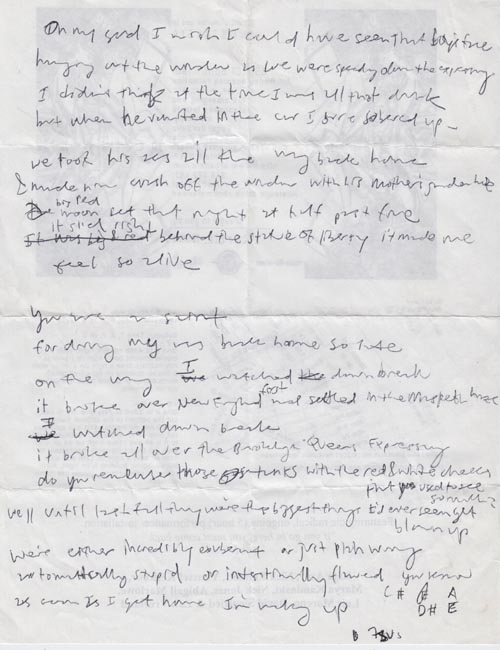 Oh my god I wish I could have seen that boys face
hanging out the window as we were speeding down the expressway
I didn't think at the time I was all that drunk
but when he vomited in the car I sure sobered up
we took his ass all the way back home
& made him wash off the window with his mother's garden hose
big red
moon set that night at half past five
it slid right
It was big & red behind the statue of liberty it made me
feel so alive
You are a saint
for driving my ass back home so late
on the way I watched the dawn break
it broke over New England first and settled in the Maspeth
I watched dawn break
it broke all over the Brooklyn Queens Expressway
do you remember those tanks with the red & white checks
that you used to see
so much?
well until last fall they were the biggest things I'd ever seen get
blown up
We're either incredibly exuberant or just plain wrong
automatically stupid or intentionally flawed you know
as soon as I get home I'm waking up
C# E A
D# E
7sus